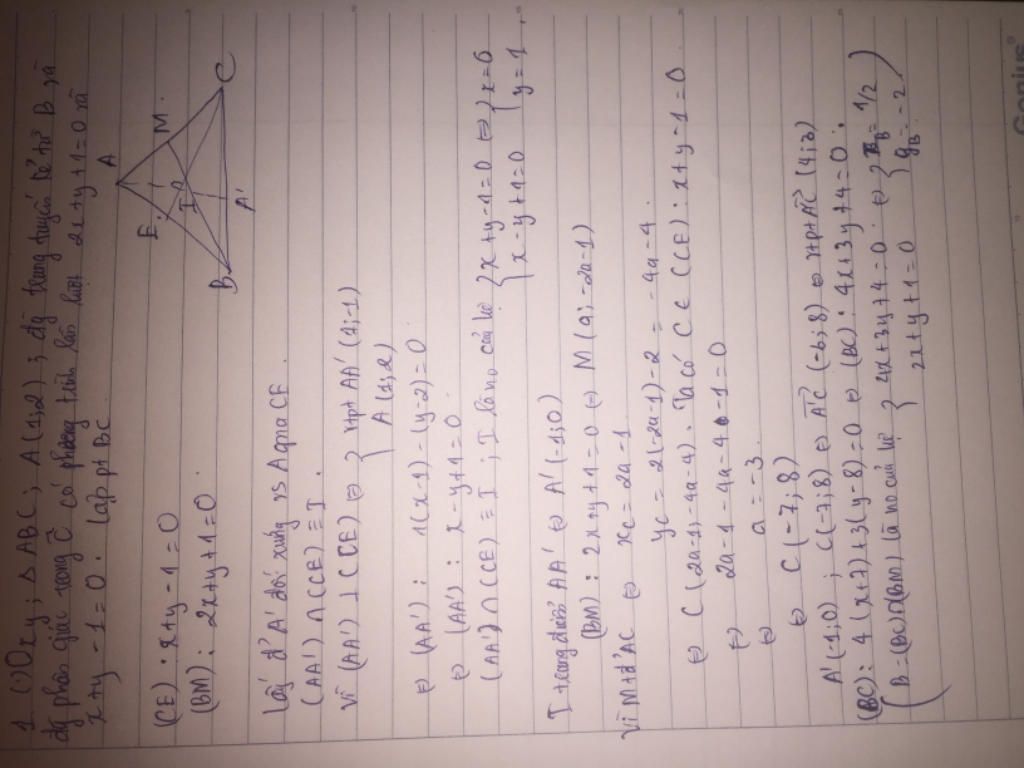 1 () Oxy ; Δ ABC ; A(1;2) ; đg trung tuyến kẻ từ B và
đg phân giác trong Ĉ có phương trình lần lượt 2x+y+1=0 và
x+y-1=0 . Lập pt BC
A
M
E
I
B
A'
C
(CE) : x+y-1=0
(BM) : 2x+y+1=0
Lấy đ' A' đối xứng vs A qua CE
(AA') ∩ (CE) ≡ I .
Vì (AA') ⊥ (CE) ⇔ { vtpt AA' (1;-1)
A(1;2)
⇔ (AA') : 1(x-1)-(y-2)=0
⇔ (AA') : x-y+1=0
(AA') ∩ (CE) ≡ I ; I là no của hệ { x+y-1=0 ⇔ { x=0
x-y+1=0 { y=1
I trung điểm AA' ⇔ A'(-1;0)
(BM) : 2x+y+1=0 ⇔ M(a;-2a-1)
Vì M tđ' AC ⇔ xC = 2a-1
yC = 2(-2a-1)-2 = -4a-4 .
⇔ C(2a-1;-4a-4) . Ta có C ∈ (CE) : x+y-1=0
⇔ 2a-1-4a-4-1=0
⇔ a=-3
⇔ C(-7;8)
A'(-1;0) ; C(-7;8) ⇔ A'C (-6;8) ⇔ vtpt A'C (4;3)
(BC) : 4(x+7)+3(y-8)=0 ⇔ (BC) : 4x+3y+4=0 .
B=(BC)∩(BM) là no của hệ { 4x+3y+4=0 ⇔ { xB = 1/2
2x+y+1=0 { yB = -2
Genius